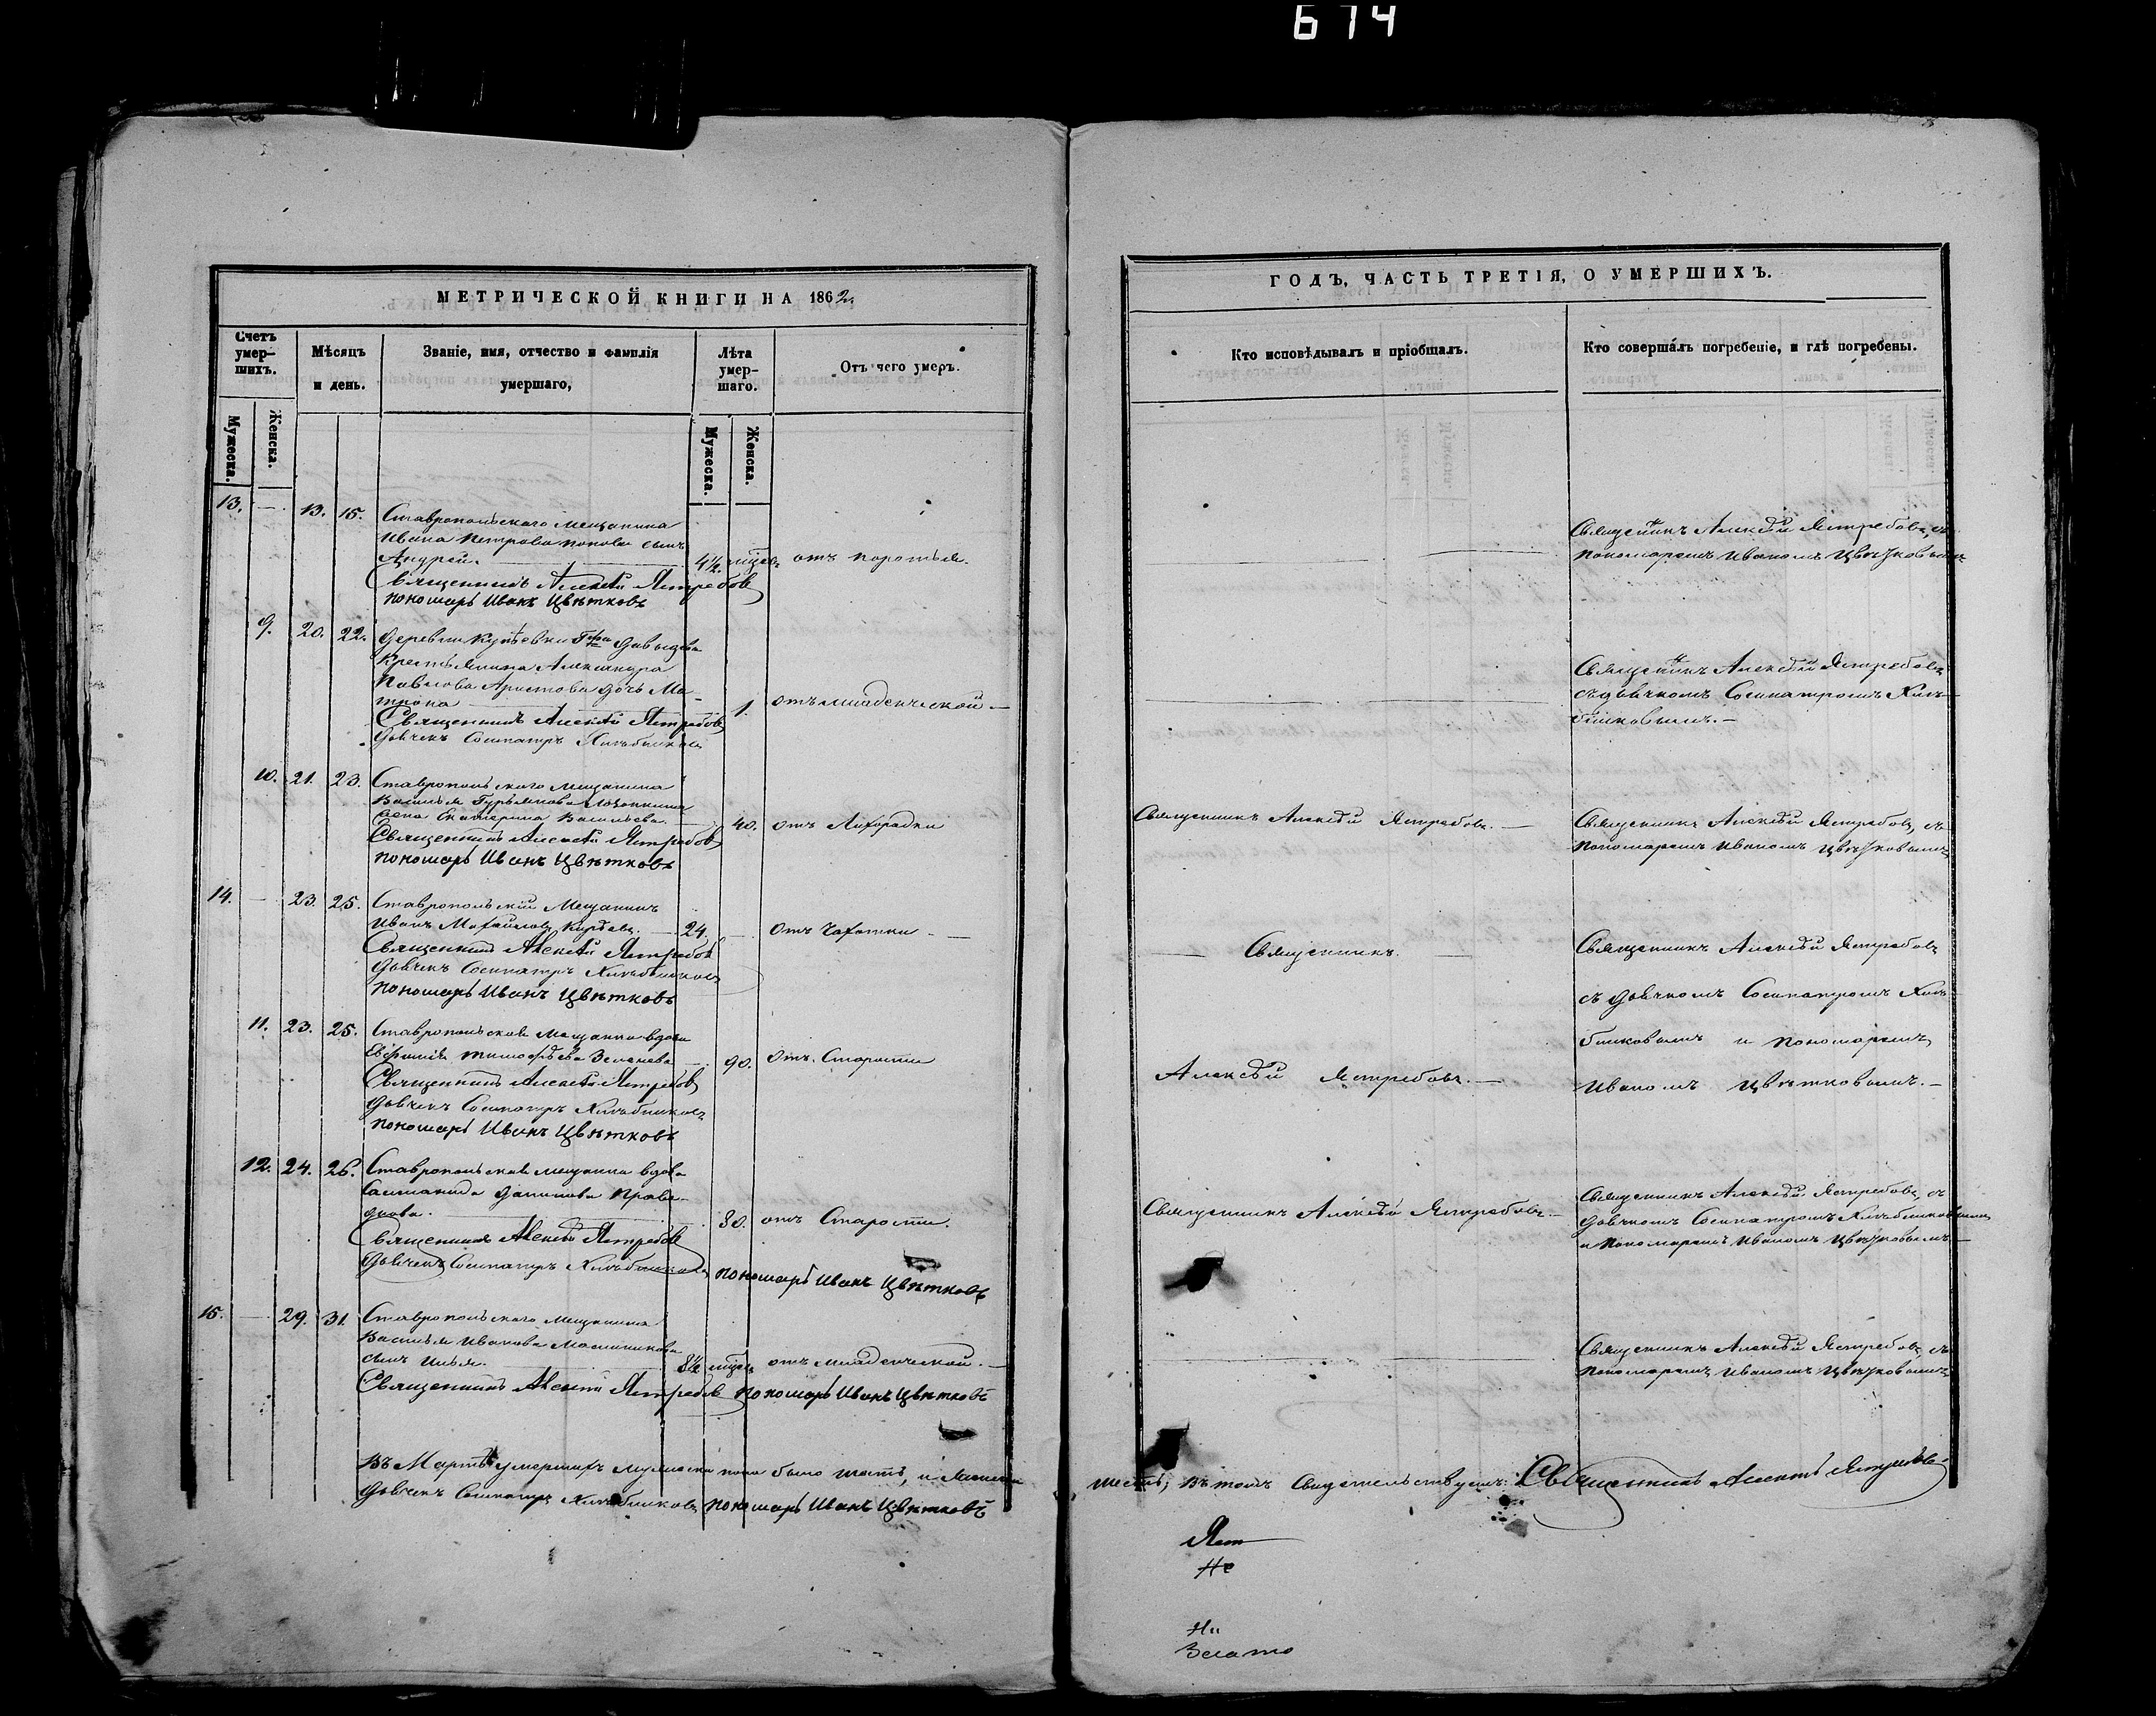 674
МЕТРИЧЕСКОЙ КНИГИ НА 1862
Счетъ умер-шихъ.
Мѣсяцъ и день.
Званіе, имя, отчество и фамилія умершаго,
Лѣта умер-шаго.
Отъ чего умеръ.
Мужеска.
Женска.
Мужеска.
Женска.
13. — 13. 15. Ставропольскаго мещанина
Ивана Петрова Попова сынъ
Андрей. 4½ мѣсяц. отъ поротья.
Священникъ Алексѣй Ястребовъ
Пономарь Иванъ Цвѣтковъ
9. 20. 22. Деревни Гфа Давыдова
крестьянина Александра
Павлова Аристова дочь Ма-
трона 1. отъ младенческой —
Священникъ Алексѣй Ястребовъ
Дьячекъ Сосипатръ Хлѣбниковъ
10. 21. 23. Ставропольскаго мещанина
Василья Гурьянова
жена Екатерина Васильева. 40. отъ Лихорадки
Священникъ Алексѣй Ястребовъ
Пономарь Иванъ Цвѣтковъ
14. — 23. 25. Ставропольскій Мещанинъ
Иванъ Михайловъ 24. — отъ Чахотки —
Священникъ Алексѣй Ястребовъ
Дьячекъ Сосипатръ Хлѣбниковъ
Пономарь Иванъ Цвѣтковъ
11. 23. 25. Ставропольская Мещанка вдова
Евфимія Тимофѣева 90. отъ Старости
Священникъ Алексѣй Ястребовъ
Дьячекъ Сосипатръ Хлѣбниковъ
Пономарь Иванъ Цвѣтковъ
12. 24. 26. Ставропольская мещанка вдова
Данилова
80. отъ Старости.
Священникъ Алексѣй Ястребовъ
Дьячекъ Сосипатръ Хлѣбниковъ Пономарь Иванъ Цвѣтковъ
15. — 29. 31. Ставропольскаго Мещанина
Василья Иванова Масленникова
сынъ Илья. 8½ мѣсяц отъ младенческой. —
Священникъ Алексѣй Ястребовъ Пономарь Иванъ Цвѣтковъ
Въ Мартѣ умершихъ мужеска пола было шесть, и женска
Дьячекъ Сосипатръ Хлѣбниковъ Пономарь Иванъ Цвѣтковъ
ГОДЪ, ЧАСТЬ ТРЕТІЯ, О УМЕРШИХЪ.
Кто исповѣдывалъ и пріобщалъ.
Кто совершалъ погребеніе, и гдѣ погребены.
Священникъ Алексѣй Ястребовъ, съ
пономаремъ Иваномъ Цвѣтковымъ
Священникъ Алексѣй Ястребовъ
съ дьячкомъ Сосипатромъ Хлѣ-
бниковымъ. —
Священникъ Алексѣй Ястребовъ. —
Священникъ Алексѣй Ястребовъ, съ
пономаремъ Иваномъ Цвѣтковымъ
Священникъ.
Алексѣй Ястребовъ. —
Священникъ Алексѣй Ястребовъ
съ дьячкомъ Сосипатромъ Хлѣ-
бниковымъ и пономаремъ
Иваномъ Цвѣтковымъ. —
Священникъ Алексѣй Ястребовъ. —
Священникъ Алексѣй Ястребовъ, съ
дьячкомъ Сосипатромъ Хлѣбниковымъ
и пономаремъ Иваномъ Цвѣтковымъ —
Священникъ Алексѣй Ястребовъ, съ
пономаремъ Иваномъ Цвѣтковымъ
шесть; въ томъ свидетельствуемъ: Священникъ Алексѣй Ястребовъ
Не
Ни